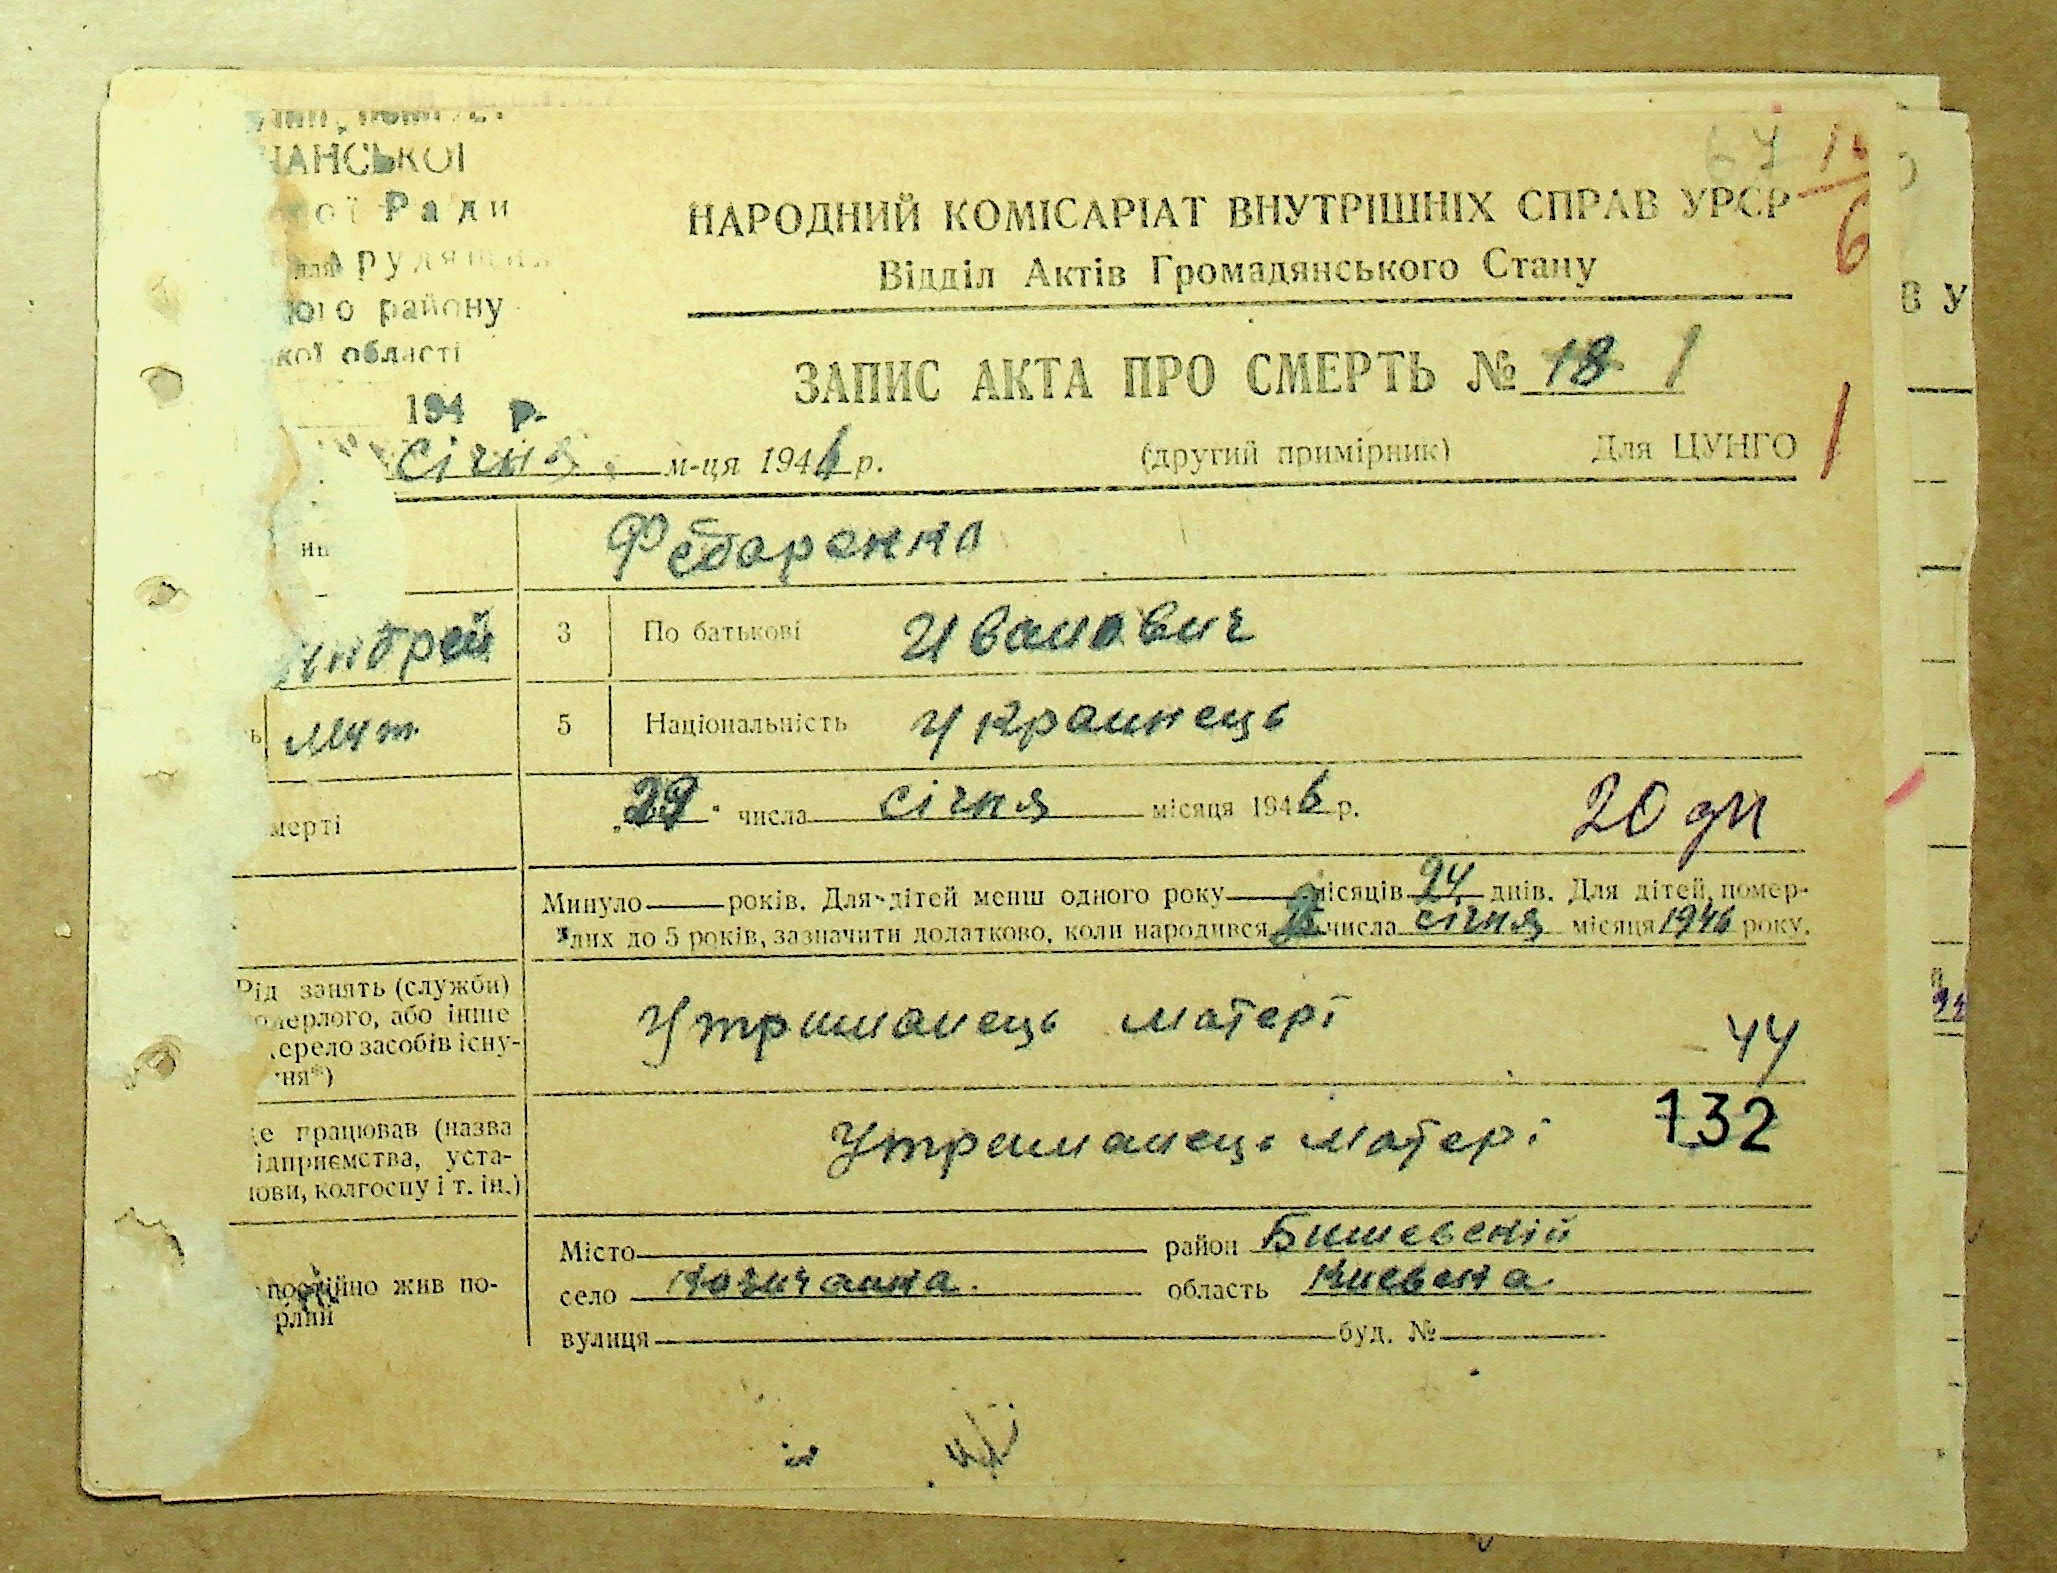 НАРОДНИЙ КОМІСАРІАТ ВНУТРІШНІХ СПРАВ УРСР
Відділ Актів Громадянського Стану
ЗАПИС АКТА ПРО СМЕРТЬ № 18 1
НАНСЬКОЇ
ої Ради
ого району
кої області
194 р.
січня м-ця 1946 р.
(другий примірник) Для ЦУНГО
Федоренко
Андрей 3 По батькові Иванович
ь Муж. 5 Національність Украинець
мерті 29 числа січня місяця 1946 р. 20 дн
Минуло років. Для дітей менш одного року місяців 24 днів. Для дітей, помер-
лих до 5 років, зазначити додатково, коли народився числа січня місяця 1946 року.
Рід занять (служби)
омерлого, або інше
ерело засобів існу-
ня*)
Утриманець матері
44
де працював (назва
ідприємства, уста-
нови, колгоспу і т. ін.)
Утриманець матері
132
постійно жив по-
рлий
Місто район Бишевський
село Козичанка область Киевска
вулиця буд. №